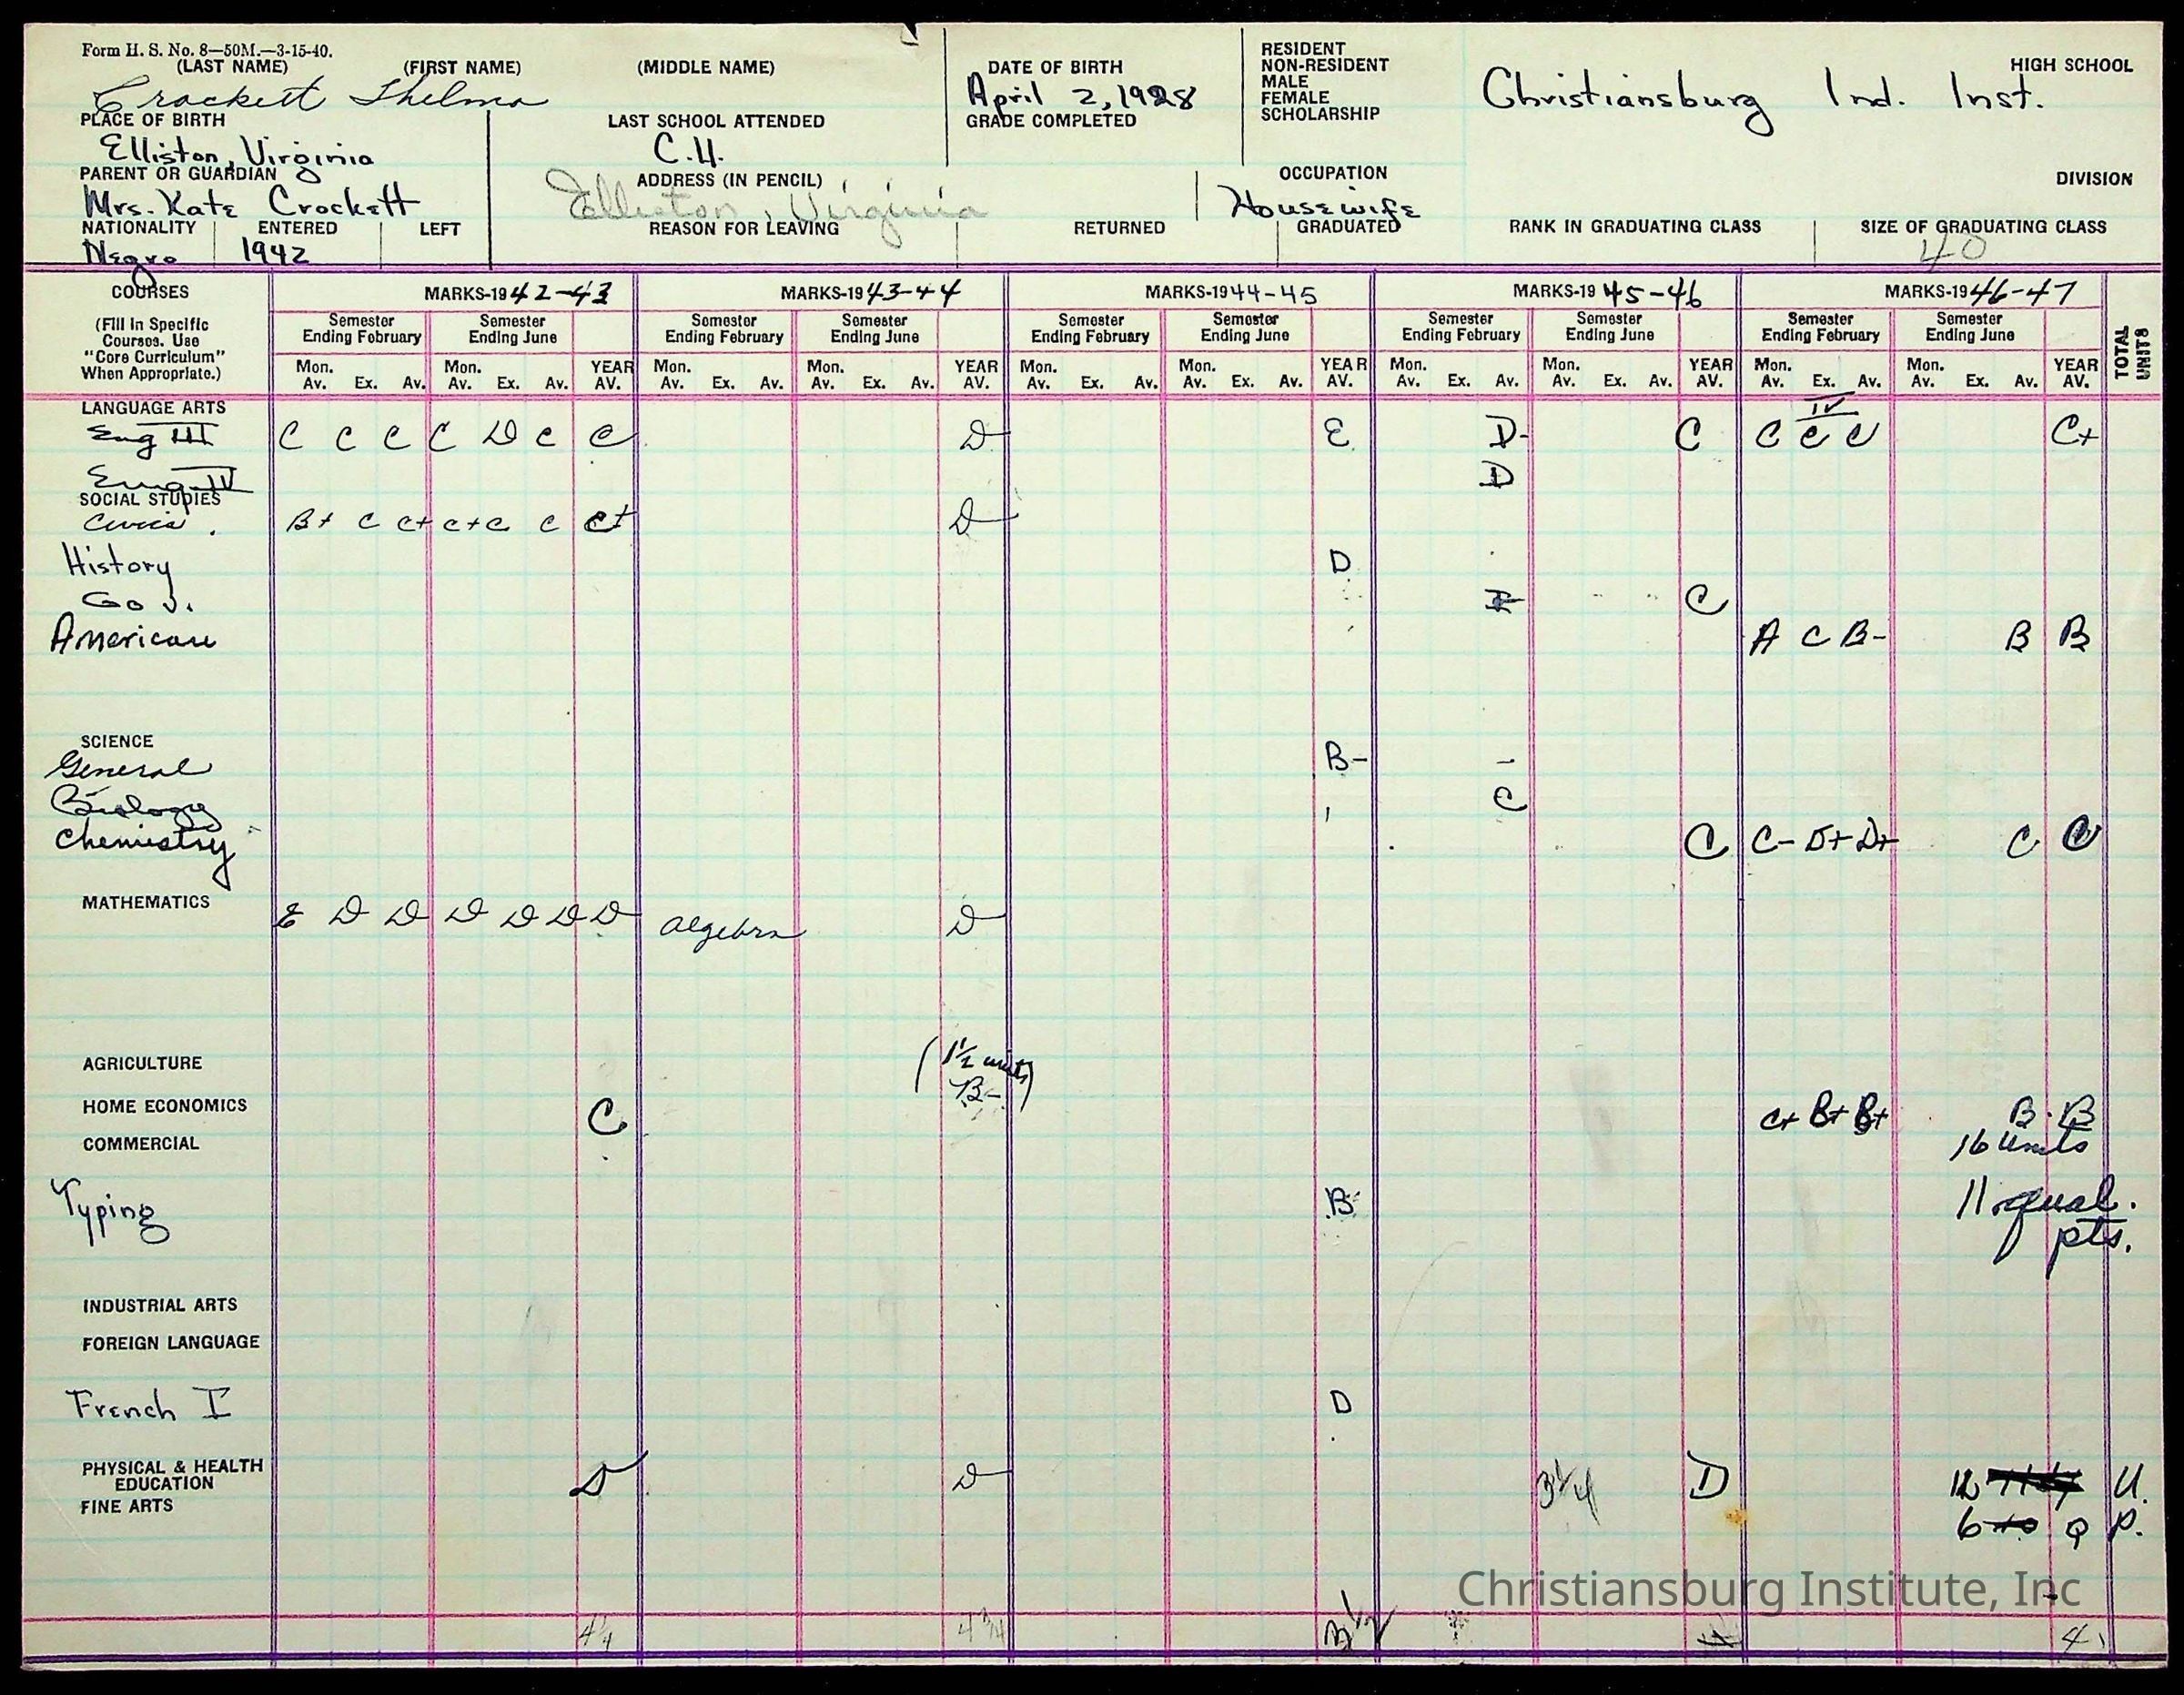 Form H. S. No. 8—50M.—3-15-40.
(LAST NAME) (FIRST NAME) (MIDDLE NAME) DATE OF BIRTH
Crockett Thelma April 2, 1928
RESIDENT
NON-RESIDENT
MALE
FEMALE
SCHOLARSHIP
Christiansburg Ind. Inst. HIGH SCHOOL
PLACE OF BIRTH LAST SCHOOL ATTENDED GRADE COMPLETED
Elliston, Virginia C.H.
PARENT OR GUARDIAN ADDRESS (IN PENCIL) OCCUPATION DIVISION
Mrs. Kate Crockett Elliston, Virginia Housewife
NATIONALITY ENTERED LEFT REASON FOR LEAVING RETURNED GRADUATED RANK IN GRADUATING CLASS SIZE OF GRADUATING CLASS
Negro 1942 40
COURSES MARKS-1942-43 MARKS-1943-44 MARKS-1944-45 MARKS-1945-46 MARKS-1946-47 TOTAL UNITS
(Fill In Specific
Courses. Use
"Core Curriculum"
When Appropriate.)
Semester Ending February Semester Ending June Semester Ending February Semester Ending June Semester Ending February Semester Ending June Semester Ending February Semester Ending June Semester Ending February Semester Ending June
Mon. Av. Ex. Av. Mon. Av. Ex. Av. YEAR AV. Mon. Av. Ex. Av. Mon. Av. Ex. Av. YEAR AV. Mon. Av. Ex. Av. Mon. Av. Ex. Av. YEAR AV. Mon. Av. Ex. Av. Mon. Av. Ex. Av. YEAR AV. Mon. Av. Ex. Av. Mon. Av. Ex. Av. YEAR AV.
LANGUAGE ARTS IV
Eng III C C C C D C C D E D- C C C C C+
Eng IV D
SOCIAL STUDIES
Civics B+ C C+ C+ C C C+ D
History D
Gov. C
American A C B- B B
SCIENCE
General B-
Biology C
Chemistry C C- D+ D+ C C
MATHEMATICS E D D D D D D algebra D
AGRICULTURE (1½ units)
HOME ECONOMICS C B- C+ B+ B+ B B
COMMERCIAL 16 units
Typing B 11 qual.
pts.
INDUSTRIAL ARTS
FOREIGN LANGUAGE
French I D
PHYSICAL & HEALTH
EDUCATION D D 3¼ D 12 U.
FINE ARTS
6 Q P.
Christiansburg Institute, Inc
4¼ 4¾ 3½ 4